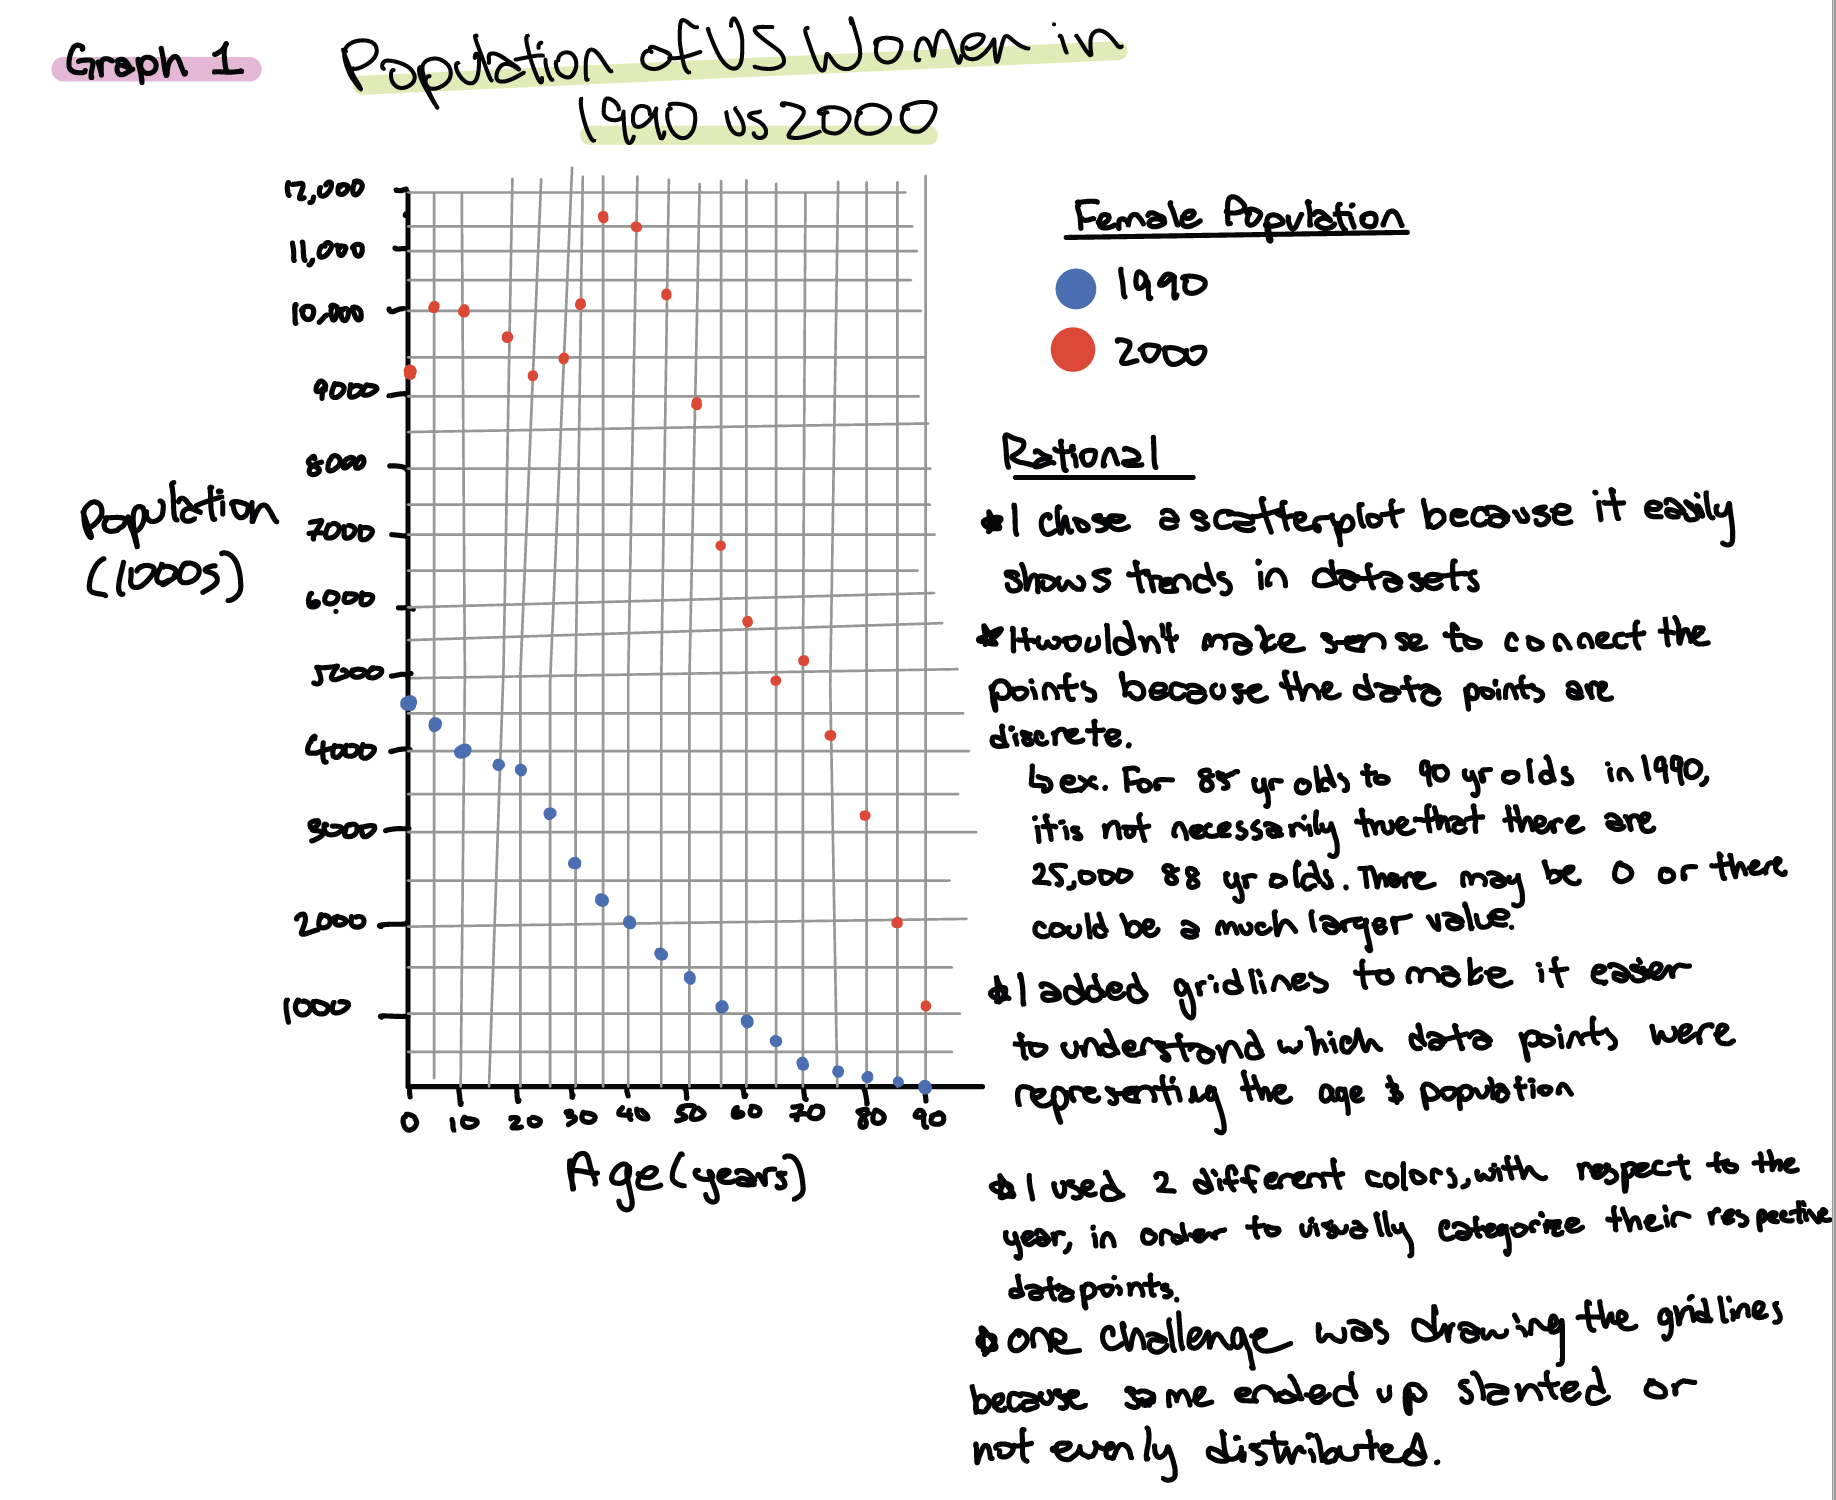 Graph 1
Population of US Women in
1990 vs 2000
12,000
11,000
10,000
9000
8000
7000
6000
5000
4000
3000
2000
1000
Population
(1000s)
0 10 20 30 40 50 60 70 80 90
Age (years)
Female Population
1990
2000
Rational
* I chose a scatterplot because it easily
shows trends in datasets
* It wouldn't make sense to connect the
points because the data points are
discrete.
↳ ex. For 85 yr olds to 90 yr olds in 1990,
it is not necessarily true that there are
25,000 88 yr olds. There may be 0 or there
could be a much larger value.
* I added gridlines to make it easier
to understand which data points were
representing the age & population
* I used 2 different colors, with respect to the
year, in order to visually categorize their respective
datapoints.
* one challenge was drawing the gridlines
because some ended up slanted or
not evenly distributed.